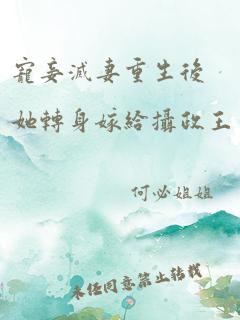 寵妾滅妻重生後
她轉身嫁給攝政王
何必姐姐
未經同意禁止轉載